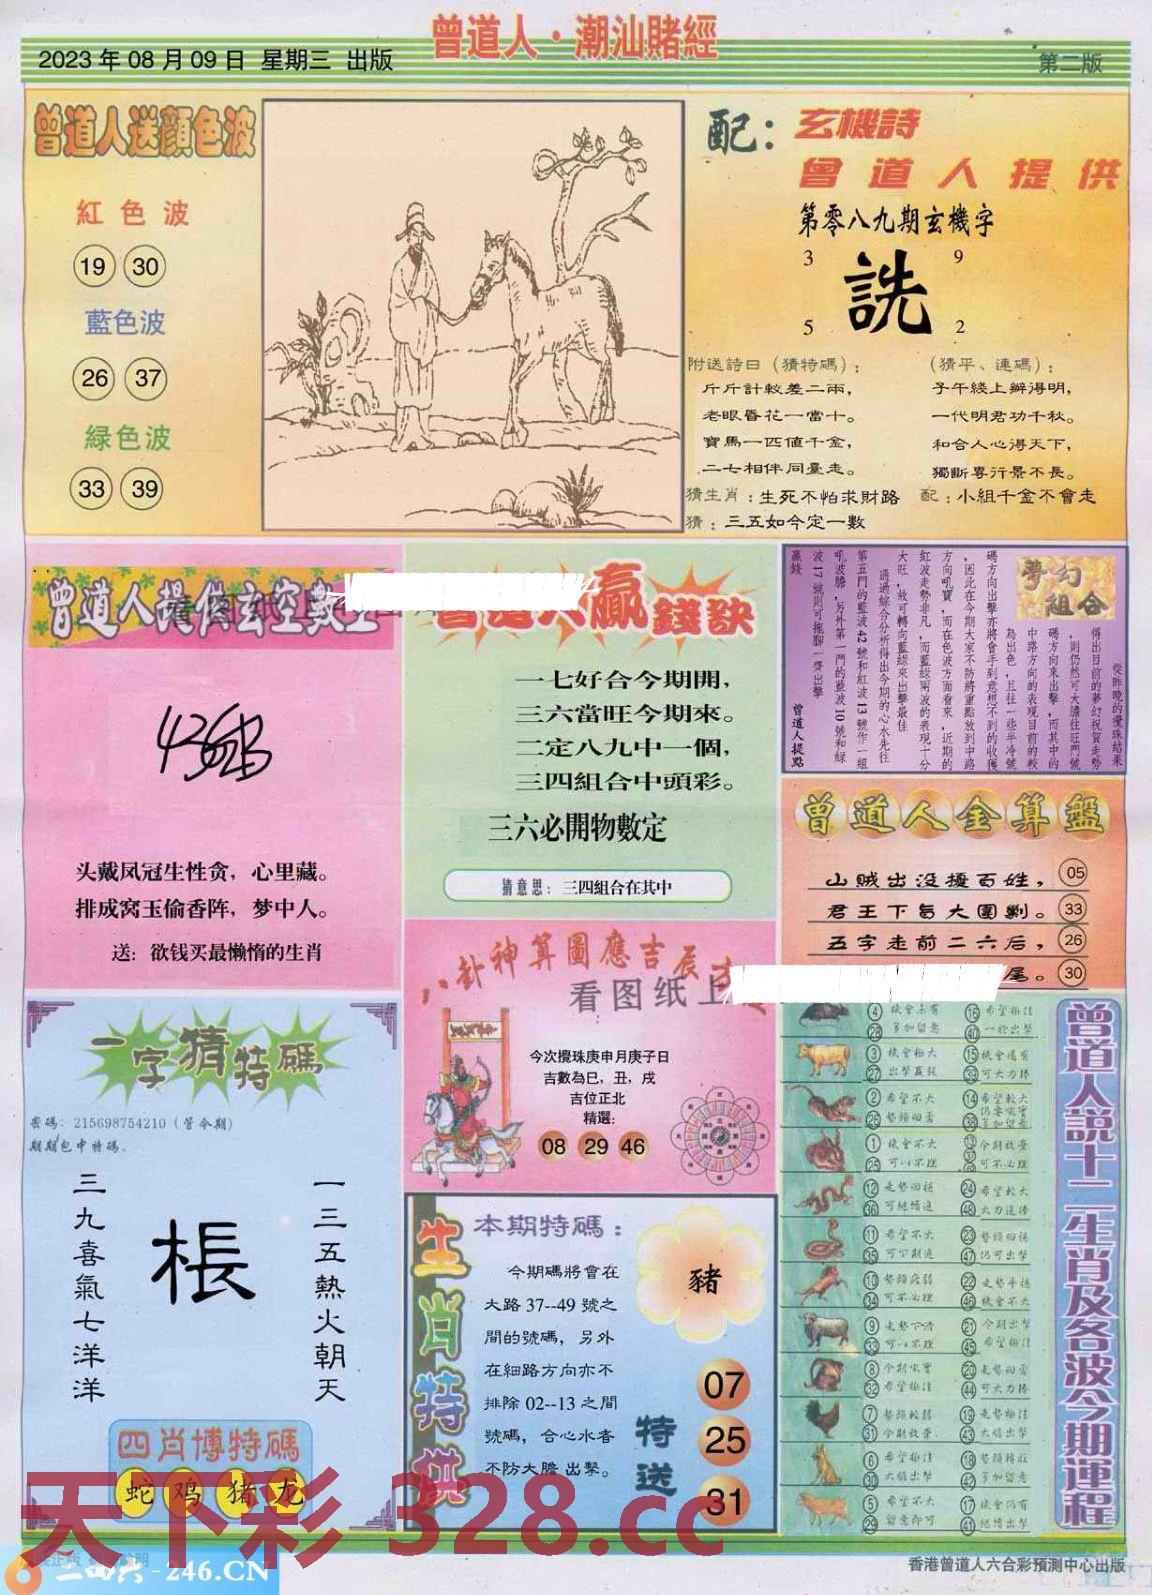 曾道人·潮汕賭經
2023年08月09日 星期三 出版
第二版
曾道人送顏色波
紅色波
19 30
藍色波
26 37
緑色波
33 39
配：玄機詩
曾道人提供
第零八九期玄機字
3 9
詵
5 2
附送詩曰（猜特碼）：
斤斤計較差二兩，
老眼昏花一當十。
寶馬一匹值千金，
二七相伴同臺走。
（猜平、連碼）：
子午綫上辦得明，
一代明君功千秋。
和合人心得天下，
獨斷專行景不長。
猜生肖：生死不怕求財路
配：小組千金不會走
猜：三五如今定一數
曾道人提供玄空數
头戴凤冠生性贪，心里藏。
排成窝玉偷香阵，梦中人。
送：欲钱买最懒惰的生肖
曾道人贏錢訣
一七好合今期開，
三六當旺今期來。
二定八九中一個，
三四組合中頭彩。
三六必開物數定
猜意思：三四組合在其中
夢幻組合
從昨晚的攪珠結果
得出目前的夢幻祝賀走勢
，則仍然可大膽往旺門號
碼方向來出擊，而其中的
中路方向的表現目前的較
為出色，且往一些半冷號
碼方向出擊亦將會手到意想不到的收獲
，因此在今期大家不防將重點放到中路
方向吼寶，而在色波方面看來，近期的
紅波走勢非凡，而藍緑兩波的表現十分
大旺，故可轉向藍緑來出擊最佳
通過綜合分析得出今期的心水先往
第五門的藍波42號和紅波13號作一組
吼波膽，另外第一門的藍波10號和緑
波17號則可拖腳一齊出擊
贏錢
曾道人提點
曾道人金算盤
山賊出没擾百姓， 05
君王下旨大圍剿。 33
五字走前二六后， 26
尾。 30
八卦神算圖應吉辰
看图纸上
今次攪珠庚申月庚子日
吉數為巳，丑，戌
吉位正北
精選：
08 29 46
一字猜特碼
密碼：215698754210（管令期）
期期包中特碼。
一三五熱火朝天
棖
三九喜氣七洋洋
四肖博特碼
蛇 鸡 猪 龙
生肖特供
本期特碼：
今期碼將會在
大路37--49號之
間的號碼，另外
在細路方向亦不
排除02--13之間
號碼，合心水者
不防大膽出擊。
豬
特送
07
25
31
曾道人説十二生肖及各波今期運程
4 機會未有
28 多加留意
16 希望極佳
40 一於出擊
3 機會極大
27 出擊贏錢
15 機會還有
39 可大力捧
2 希望不大
26
14 希望較大
38
1 機會不大
25 可以不理
今期放棄
可不必理
12 走勢回穩
36 可繼續追
24 希望較大
48 大力追捧
11 希望不大
35
23 勢頭回穩
47 仍可出擊
10 勢頭疲弱
34 可不必理
22
46 機會不大
9 走勢下滑
33 可以不理
21 今期出擊
45 希望極佳
8
32 希望極佳
20
44 可大力捧
7 勢頭較弱
31 今期放棄
19 走勢極佳
43 大膽出擊
6 希望極佳
30 大膽出擊
18
42 多加留意
5 希望不大
29 留意即可
17 機會仍有
41 繼續出擊
天下彩 328.cc
二四六-246.CN
香港曾道人六合彩預測中心出版